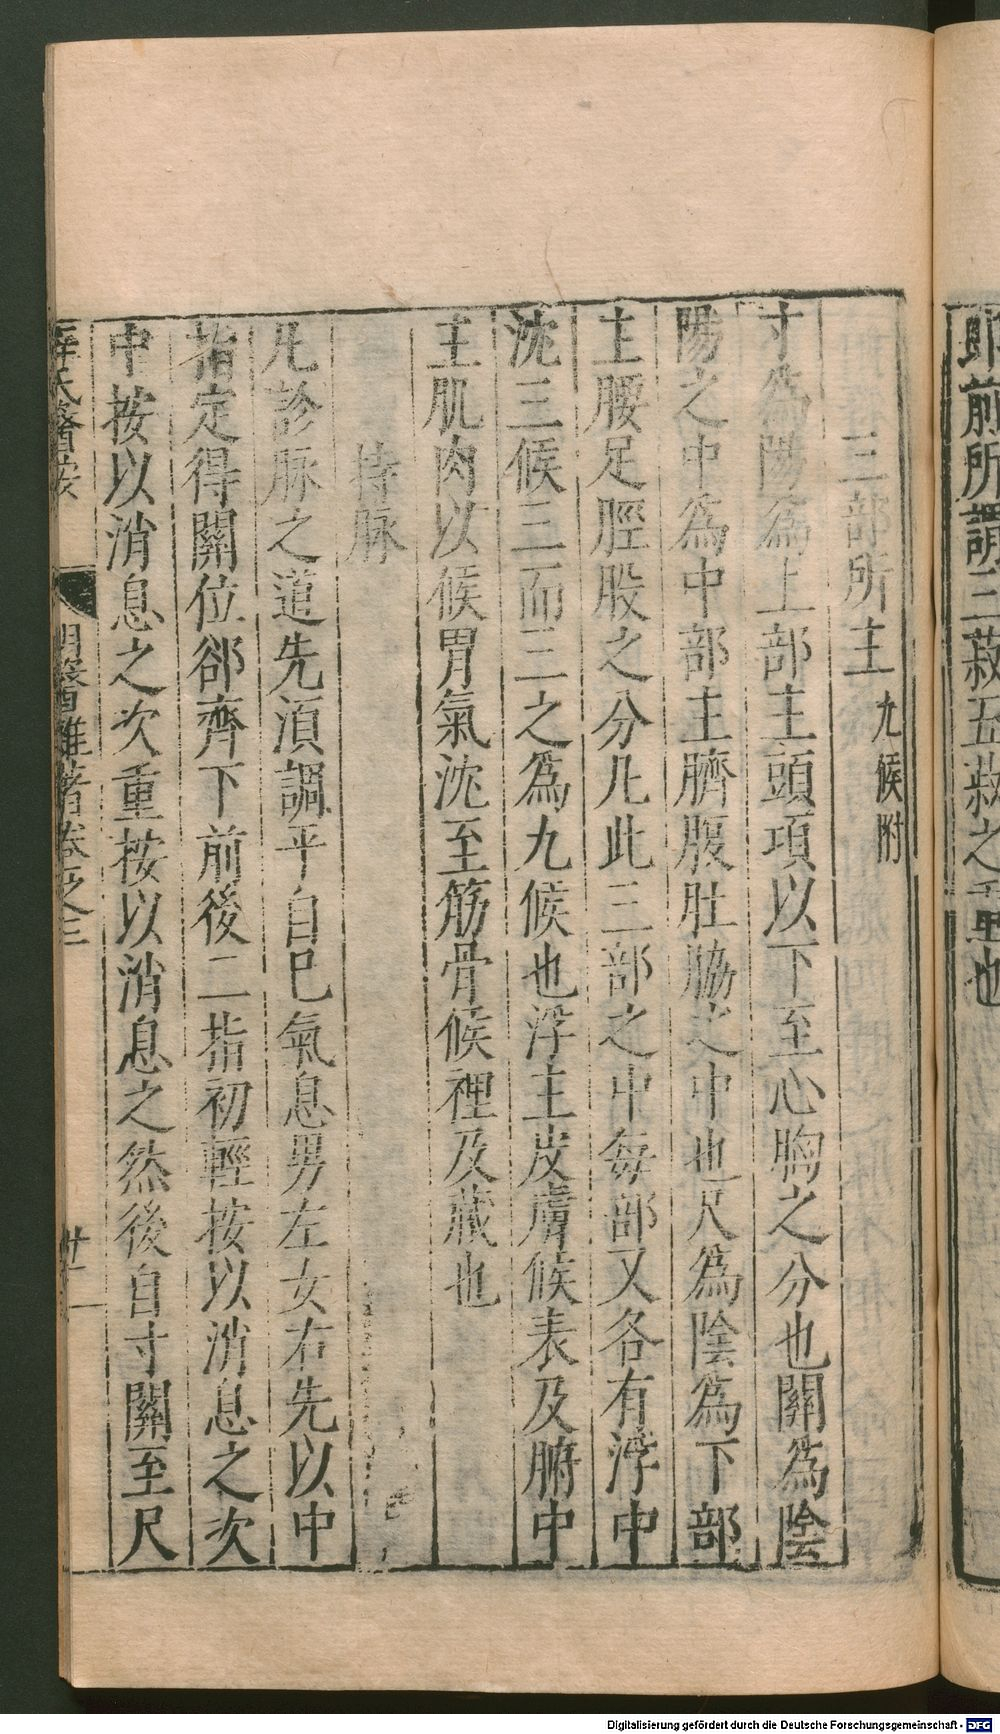 即前所謂三菽五菽之重也
三部所主 九候附
寸爲陽爲上部主頭項以下至心胸之分也關爲陰
陽之中爲中部主臍腹肚脇之中也尺爲陰爲下部
主腰足脛股之分凡此三部之中每部又各有浮中
沈三候三而三之爲九候也浮主皮膚候表及腑中
主肌肉以候胃氣沈至筋骨候裡及藏也
持脉
凡診脉之道先湏調平自巳氣息男左女右先以中
指定得關位郤齊下前後二指初輕按以消息之次
中按以消息之次重按以消息之然後自寸關至尺
氏醫按 明醫雜著卷之三 廿一
Digitalisierung gefördert durch die Deutsche Forschungsgemeinschaft - DFG